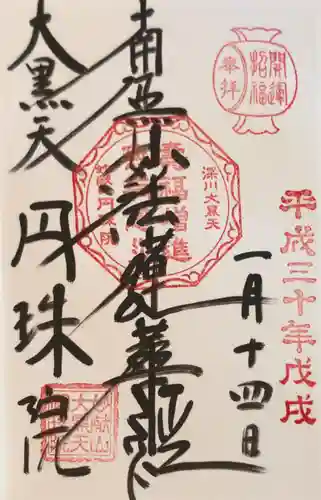 開運
招福
奉拝
平成三十年戊戌
一月十四日
深川大黒天
南無妙法蓮華経
大黒天
円珠院
大黒天